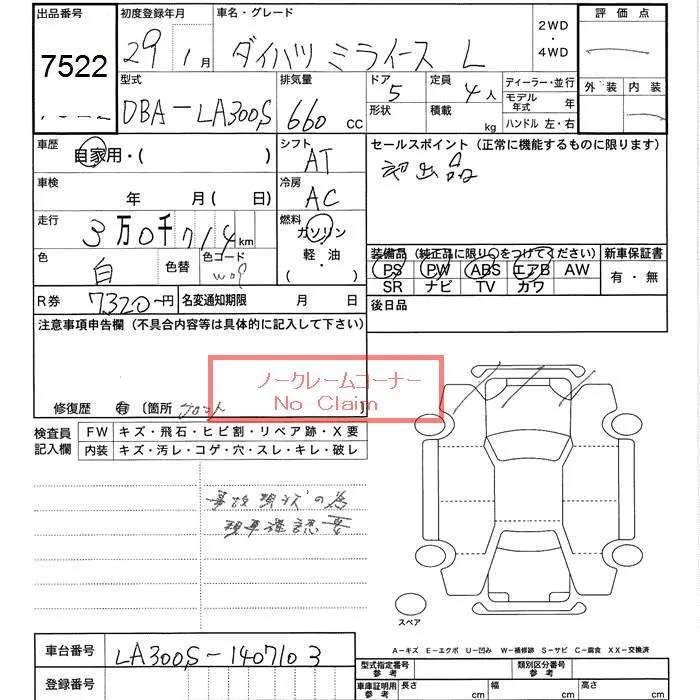 出品番号 初度登録年月 車名・グレード 2WD・4WD 評価点
7522 29 1月 ダイハツ ミライース L
型式 排気量 ドア形状 定員 積載 ディーラー・並行 外装 内装
DBA-LA300S 660 cc 5 4人 kg モデル年式 年
ハンドル 左・右
車歴 自家用・( ) シフト AT セールスポイント(正常に機能するものに限ります)
初出品
車検 年 月(日) 冷房 AC
走行 3万0千714km 燃料 ガソリン 軽・油 ( )
装備品(純正品に限り○をつけてください) 新車保証書
色 白 色替 色コード W09
PS PW ABS エアB AW 有・無
SR ナビ TV カワ
R券 7320円 名変通知期限 月 日 後日品
注意事項申告欄(不具合内容等は具体的に記入して下さい)
ノークレームコーナー
No Claim
修復歴 有 〔箇所 フロント 〕
検査員記入欄 FW キズ・飛石・ヒビ割・リペア跡・X要
内装 キズ・汚レ・コゲ・穴・スレ・キレ・破レ
事故現状の為
現車確認要
スペア
A-キズ E-エクボ U-凹み W-補修跡 S-サビ C-腐食 XX-交換済
車台番号 LA300S-1407103
型式指定番号 参考 類別区分番号 参考
登録番号 車庫証明用 参考 長さ cm 幅 cm 高さ cm